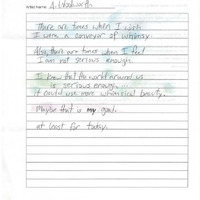 Artist Name: A. Woolworth
There are times when I wish
I were a conveyor of whimsy.
Also, there are times when I feel
I am not serious enough.
I know that the world around us
is serious enough....
it could use more whimsical beauty.
Maybe that is my goal.
at least for today.